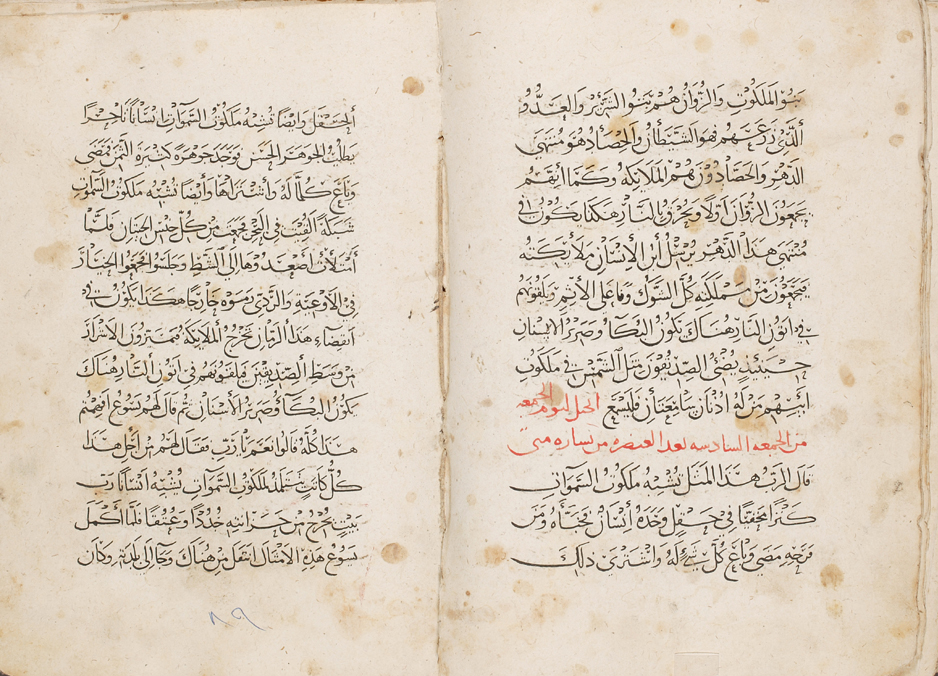 بنو الملكوت والزوان هم بنو الشرير والعدو
الذي زرعهم فهو الشيطان والحصاد هو منتهى
الدهر والحصادون هم الملايكه وكما انهم
يجمعون الزوان اولا ويحرق بالنار هكذا يكون في
منتهى هذا الدهر يرسل ابن الانسان ملايكته
فيجمعون من مملكته كل الشكوك وفاعلي الاثم ويلقونهم
في اتون النار هناك يكون البكآ وصرير الاسنان
حينيئذ يضي الصديقون مثل الشمس في ملكوت
ابيهم من له اذنان سامعتان فليسمع انجيل ليوم الجمعه
من الجمعه السادسه بعد العنصره من بشاره متى
قال الرب هذا المثل تشبه ملكوت السموات
كنزا مخفيا في حقل وجده انسان فخباه ومن
فرحه مضى وباع كل شي له واشترى ذلك
الحقل وايضا تشبه ملكوت السموات انسانا تاجرا
يطلب الجوهر الحسن فوجد جوهره كثيرة الثمن فمضى
وباع كلما له واشتراها وايضا تشبه ملكوت السموات
شبكة القيت في البحر فجمعت من كل جنس الحيتان فلما
امتلات اصعدوها الى الشط وجلسوا فجمعوا الخيار
في الاوعية والردي رموه خارجا هكذا يكون في
انقضاء هذا الزمان تخرج الملايكه فيميزون الاشرار
من وسط الصديقين فيلقونهم في اتون النار هناك
يكون البكآ وصرير الاسنان ثم قال لهم يسوع افهمتم
هذا كله قالوا نعم يا رب فقال لهم من اجل هذا
كل كاتب يتلمد لملكوت السموات يشبه انسانا رب
بيت يخرج من خزانته جددا وعتقا فلما اكمل
يسوع هذه الامثال انتقل من هناك وجا الى بلدته وكان
٨٩